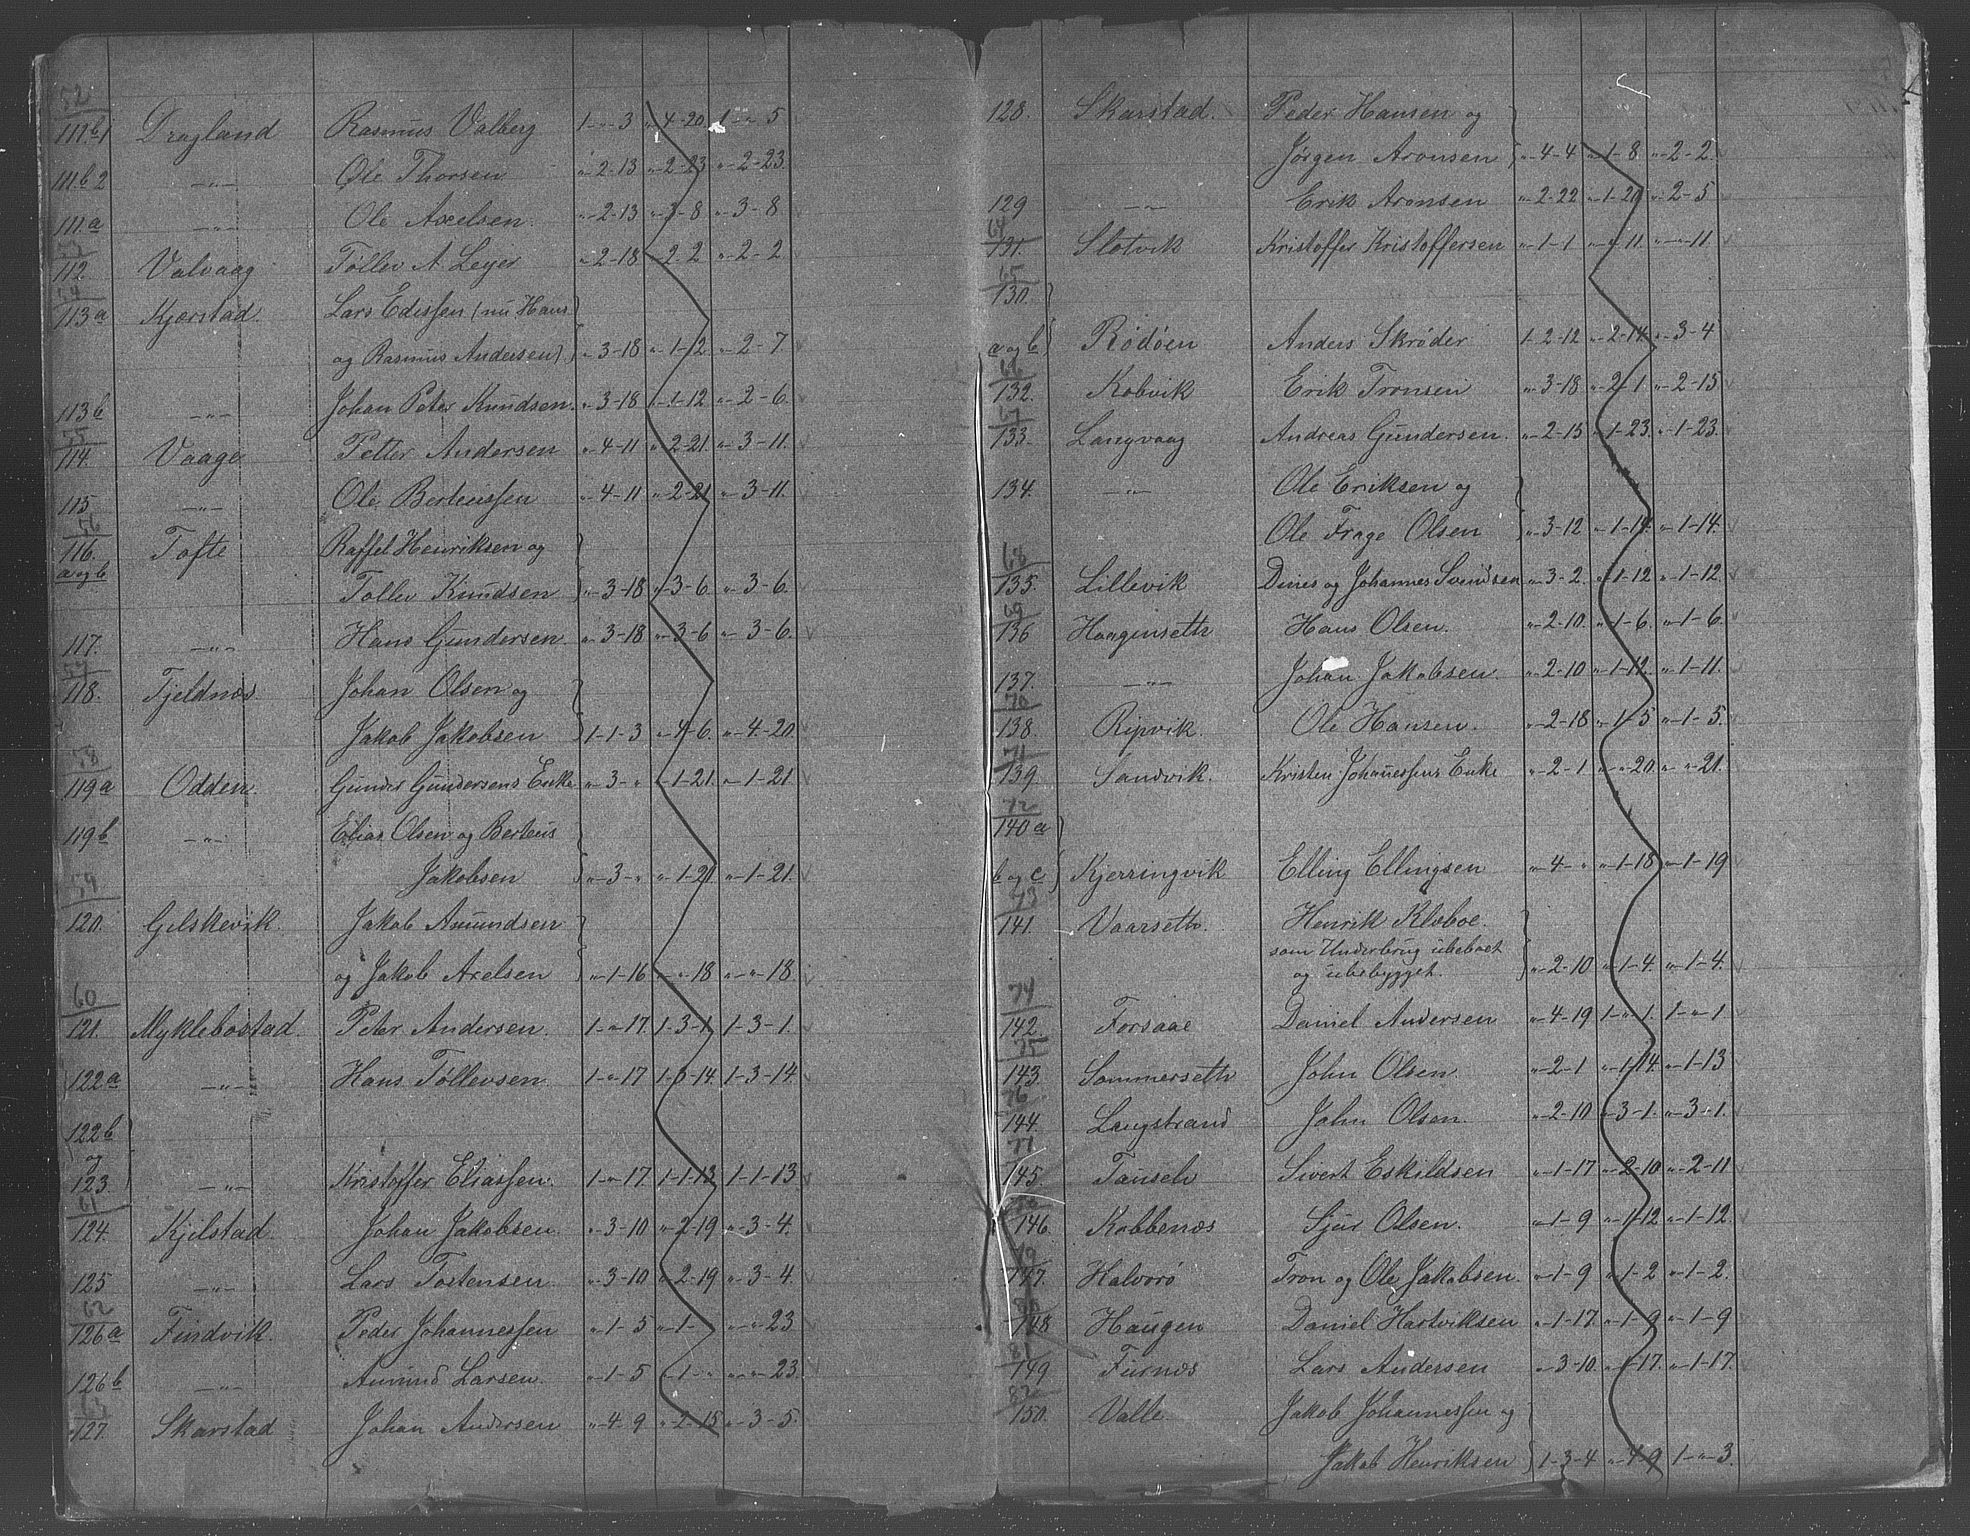 52
111.b.1 Dragland Rasmus Valberg 1-"-3 "-4-20 1-"-5
111.b 2 -"- Ole Thorsen "-2-13 "-2-23 "-2-23.
111.a -"- Ole Axelsen. "-2-13 "-3-8 "-3-8.
53
112. Valvaag Töllev A. Leyer "-2-18 "-2-2 "-2-2
54
113a Kjærstad. Lars Edissen (nu Hans
og Rasmus Andersen) "-3-18 "-1-12 "-2-7
113b -"- Johan Peter Knudsen. "-3-18 "-1-12 "-2-6.
55
114. Vaage Petter Andersen "-4-11 "-2-21. "-3-11.
115. -"- Ole Berteussen "-4-11 "-2-21 "-3-11.
56
116. Tofte Raffel Henriksen og
a og b Tollev Knudsen "-3-18 "-3-6. "-3-6.
117. -"- Hans Gundersen "-3-18 "-3-6 "-3-6.
57
118. Fjeldnæs Johan Olsen og
Jakob Jakobsen 1-1-3 "-4-6. "-4-20.
58
119a Odden Gunder Gundersens Enke "-3-" "-1-21. "-1-21
119b -"- Elias Olsen og Berteus
Jakobsen "-3-" "-1-21 "-1-21.
59
120. Gilskevik. Jakob Amundsen
og Jakob Axelsen "-1-16 "-"-18 "-"-18.
60
121. Myklebostad. Peter Andersen. 1-"-17. 1-3-1. 1-3-1.
122a -"- Hans Töllevsen 1-"-17 1-3-14. 1-3-14.
122b
og
123. -"- Kristoffer Eliassen. 1-"-17 1-1-13 1-1-13.
61
124. Kjelstad. Johan Jakobsen. "-3-10 "-2-19 "-3-4.
125 -"- Lars Tostensen. "-3-10 "-2-19 "-3-4.
62
126a Findvik. Peder Johannessen "-1-5 "-1-" "-"-23
126b -"- Amund Larsen. "-1-5 "-1-" "-"-23.
63
127. Skarstad Johan Andersen "-4-9 "-2-15 "-3-5.
128. Skarstad. Peder Hansen og
Jørgen Aronsen "-4-4 "-1-8 "-2-2.
129 -"- Erik Aronsen "-2-22 "-1-20 "-2-5
64
131. Slotvik Kristoffer Kristoffersen "-1-1 "-"-11. "-"-11.
65
130.
a og b Rödöen Anders Skrøder 1-2-12 "-2-14. "-3-4
66
132. Kobvik Erik Tronsen "-3-18 "-2-1. "-2-15
67
133. Langvaag Andreas Gundersen. "-2-15 "-1-23. "-1-23.
134. -"- Ole Eriksen og
Ole Frage Olsen "-3-12 "-1-14. "-1-14.
68
135. Lillevik Dines og Johannes Svendsen "-3-2. "-1-12. "-1-12.
69
136 Haaginseth Hans Olsen. "-2-10. "-1-6. "-1-6.
137. -"- Johan Jakobsen. "-2-10 "-1-12. "-1-11.
70
138. Ripvik. Ole Hansen. "-2-18 "-1-5 "-1-5.
71
139. Sandvik. Kristen Johannessens Enke "-2-1 "-"-20. "-"-21.
72
140a
b og c Kjerringvik Elling Ellingsen "-4-" "-1-18 "-1-19
73
141. Vaarseth. Henrik Kleboe.
som Underbrug ubeboet
og ubebygget. "-2-10 "-1-4. "-1-4.
74
142. Forsaae Daniel Andersen "-4-19 1-"-1. 1-"-1
75
143. Sommerseth John Olsen "-2-1 "-1-14. "-1-13
76
144. Langstrand John Olsen. "-2-10 "-3-1. "-3-1.
77
145. Tauseh Sivert Eskildsen "-1-17 "-2-10 "-2-11
146. Kobbenæs Sjur Olsen. "-1-9 "-1-12 "-1-12.
79
147. Halvorö Tron og Ole Jakobsen. "-1-9 "-1-2 "-1-2.
80
148 Haugen Daniel Hartviksen "-1-17. "-1-9 "-1-9
81
149 Furnæs Lars Andersen "-3-10. "-1-17. "-1-17.
82
150. Valle Jakob Johannessen og
Jakob Henriksen 1-3-4 "-4-9 1-"-3.